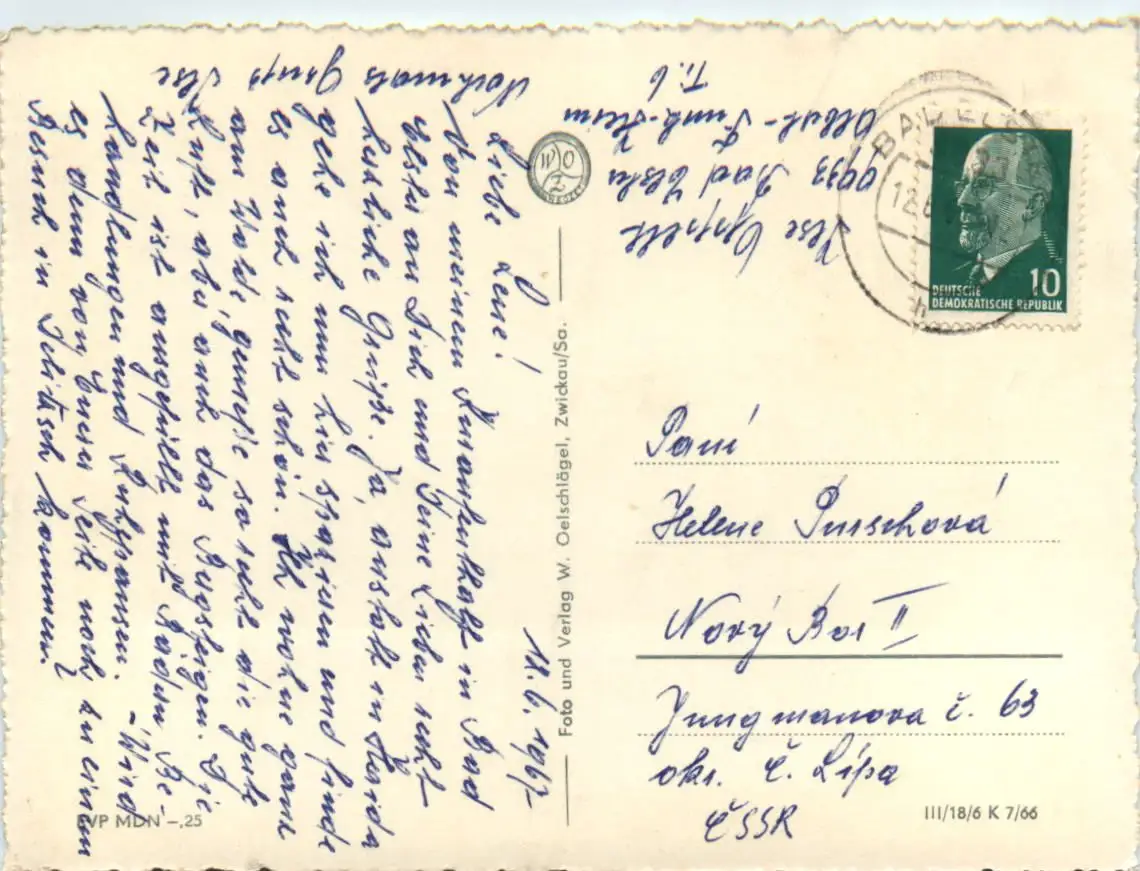 11.6.1967
Liebe Lene!
Von meinem Kuraufenthalt in Bad
Elster an Dich und Deine Lieben recht
herzliche Grüße. Ja, anstatt in Haida
gehe ich nun hier spazieren und finde
es auch recht schön. Ich wohne ganz
am Wald genieße so recht die gute
Luft, aber auch das Bergsteigen. Die
Zeit ist ausgefüllt mit Bädern Be-
handlungen und Ruhpausen. - Wird
es denn von Eurer Seite noch zu einem
Besuch in Delitzsch kommen?
Nochmals Gruß Ilse
Ilse
9933 Bad Elster
Albert-Funk-Heim
Ti. 6
WOZ
Foto und Verlag W. Oelschlägel, Zwickau/Sa.
BAD EL
12.6.
DEUTSCHE
DEMOKRATISCHE REPUBLIK
10
Paní
Helene Purschová
Nový Bor II
Jungmanova č. 63
okr. Č. Lípa
ČSSR
EVP MDN -,25
III/18/6 K 7/66